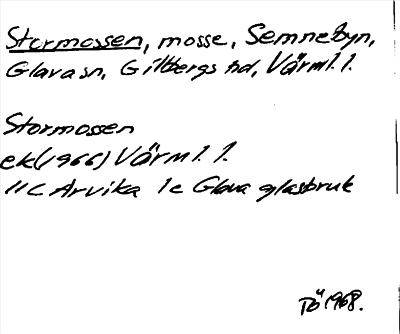 Stormossen, mosse, Semnebyn,
Glava sn, Gillbergs hd, Värml. l.
Stormossen
ek(1966) Värml. l.
11C Arvika 1c Glava glasbruk
Tö 1968.